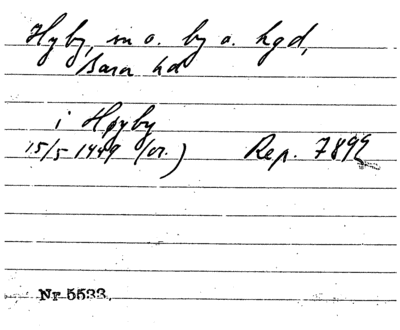 Hyby, sn o. by o. hgd,
Bara hd
i Høyby
15/5 1449 (or.) Rep. 7899
Nr 5533.